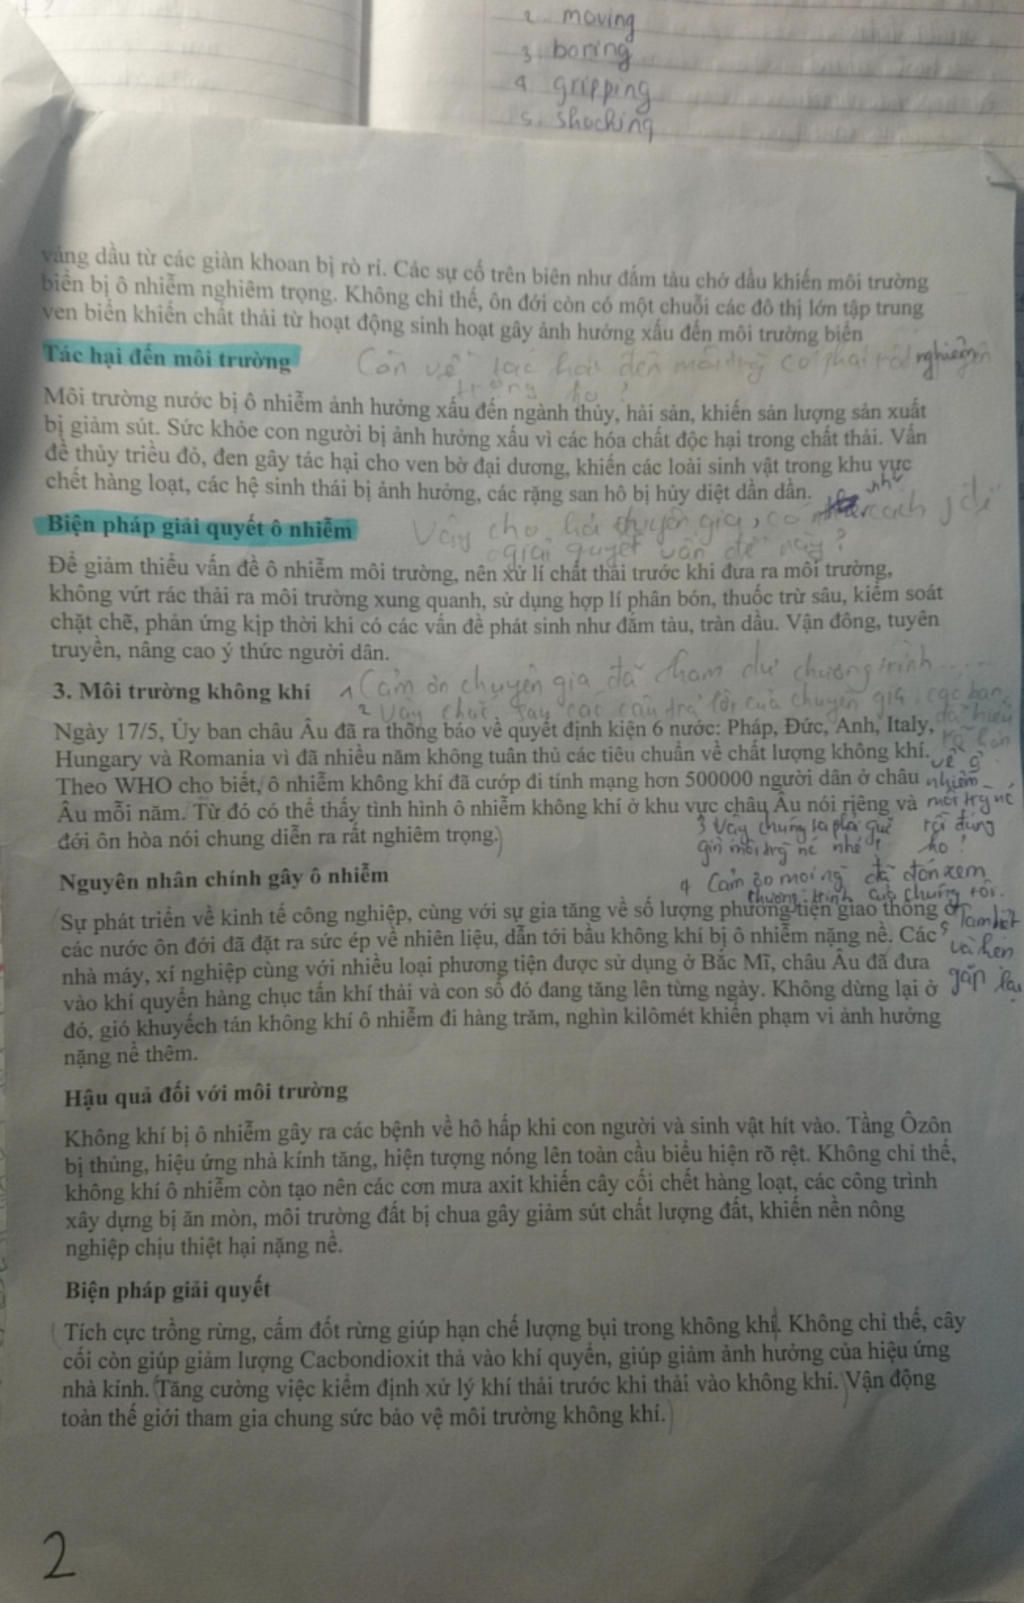 2. moving
3. boring
4 gripping
5. shocking
váng dầu từ các giàn khoan bị rò rỉ. Các sự cố trên biên như đấm tàu chở dầu khiến môi trường
biển bị ô nhiễm nghiêm trọng. Không chỉ thế, ôn đới còn có một chuỗi các đô thị lớn tập trung
ven biển khiến chất thải từ hoạt động sinh hoạt gây ảnh hưởng xấu đến môi trường biển
Tác hại đến môi trường
Còn về tác hại đến môi trg có phải rất nghiêm
trọng ko?
Môi trường nước bị ô nhiễm ảnh hưởng xấu đến ngành thủy, hải sản, khiến sản lượng sản xuất
bị giảm sút. Sức khỏe con người bị ảnh hưởng xấu vì các hóa chất độc hại trong chất thải. Vấn
đề thủy triều đỏ, đen gây tác hại cho ven bờ đại dương, khiến các loài sinh vật trong khu vực
chết hàng loạt, các hệ sinh thái bị ảnh hưởng, các rặng san hô bị hủy diệt dần dần.
Biện pháp giải quyết ô nhiễm
Vậy cho hỏi chuyên gia, có như cách j để
giải quyết vấn đề này?
Để giảm thiểu vấn đề ô nhiễm môi trường, nên xử lí chất thải trước khi đưa ra môi trường,
không vứt rác thải ra môi trường xung quanh, sử dụng hợp lí phân bón, thuốc trừ sâu, kiểm soát
chặt chẽ, phản ứng kịp thời khi có các vấn đề phát sinh như đắm tàu, tràn dầu. Vận đông, tuyên
truyền, nâng cao ý thức người dân.
3. Môi trường không khí
1 Cảm ơn chuyên gia đã tham dự chương trình.....
2 Vậy chắc sau các câu trả lời của chuyên gia, các bạn
đã hiểu
rõ hơn
về ô
nhiễm
môi trg nc
rồi đúng
ko?
Ngày 17/5, Ủy ban châu Âu đã ra thông báo về quyết định kiện 6 nước: Pháp, Đức, Anh, Italy,
Hungary và Romania vì đã nhiều năm không tuân thủ các tiêu chuẩn về chất lượng không khí.
Theo WHO cho biết, ô nhiễm không khí đã cướp đi tính mạng hơn 500000 người dân ở châu
Âu mỗi năm. Từ đó có thể thấy tình hình ô nhiễm không khí ở khu vực châu Âu nói riêng và
đới ôn hòa nói chung diễn ra rất nghiêm trọng.
3 Vậy chúng ta phải giữ
gìn môi trg nc nhé!
4 Cảm ơn mọi ng đã đón xem
chương trình của chúng tôi.
5 Tạm biệt
và hẹn
gặp lại
Nguyên nhân chính gây ô nhiễm
Sự phát triển về kinh tế công nghiệp, cùng với sự gia tăng về số lượng phương tiện giao thông ở
các nước ôn đới đã đặt ra sức ép về nhiên liệu, dẫn tới bầu không khí bị ô nhiễm nặng nề. Các
nhà máy, xí nghiệp cùng với nhiều loại phương tiện được sử dụng ở Bắc Mĩ, châu Âu đã đưa
vào khí quyển hàng chục tấn khí thải và con số đó đang tăng lên từng ngày. Không dừng lại ở
đó, gió khuyếch tán không khí ô nhiễm đi hàng trăm, nghìn kilômét khiến phạm vi ảnh hưởng
nặng nề thêm.
Hậu quả đối với môi trường
Không khí bị ô nhiễm gây ra các bệnh về hô hấp khi con người và sinh vật hít vào. Tầng Ôzôn
bị thủng, hiệu ứng nhà kính tăng, hiện tượng nóng lên toàn cầu biểu hiện rõ rệt. Không chỉ thế,
không khí ô nhiễm còn tạo nên các cơn mưa axit khiến cây cối chết hàng loạt, các công trình
xây dựng bị ăn mòn, môi trường đất bị chua gây giảm sút chất lượng đất, khiến nền nông
nghiệp chịu thiệt hại nặng nề.
Biện pháp giải quyết
Tích cực trồng rừng, cấm đốt rừng giúp hạn chế lượng bụi trong không khí. Không chỉ thế, cây
cối còn giúp giảm lượng Cacbondioxit thả vào khí quyển, giúp giảm ảnh hưởng của hiệu ứng
nhà kính. (Tăng cường việc kiểm định xử lý khí thải trước khi thải vào không khí.) Vận động
toàn thế giới tham gia chung sức bảo vệ môi trường không khí.)
2